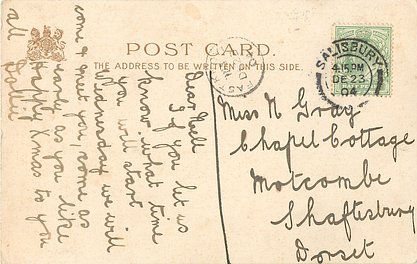 POST CARD.
THE ADDRESS TO BE WRITTEN ON THIS SIDE.
SALISBURY
4.15 PM
DE 23
04
Dear Nell
If you let us
know what time
you will start
Wednesday we will
come & meet you, come as
early as you like
Happy Xmas to you
all
Dollie
Miss N Gray
Chapel Cottage
Motcombe
Shaftesbury
Dorset